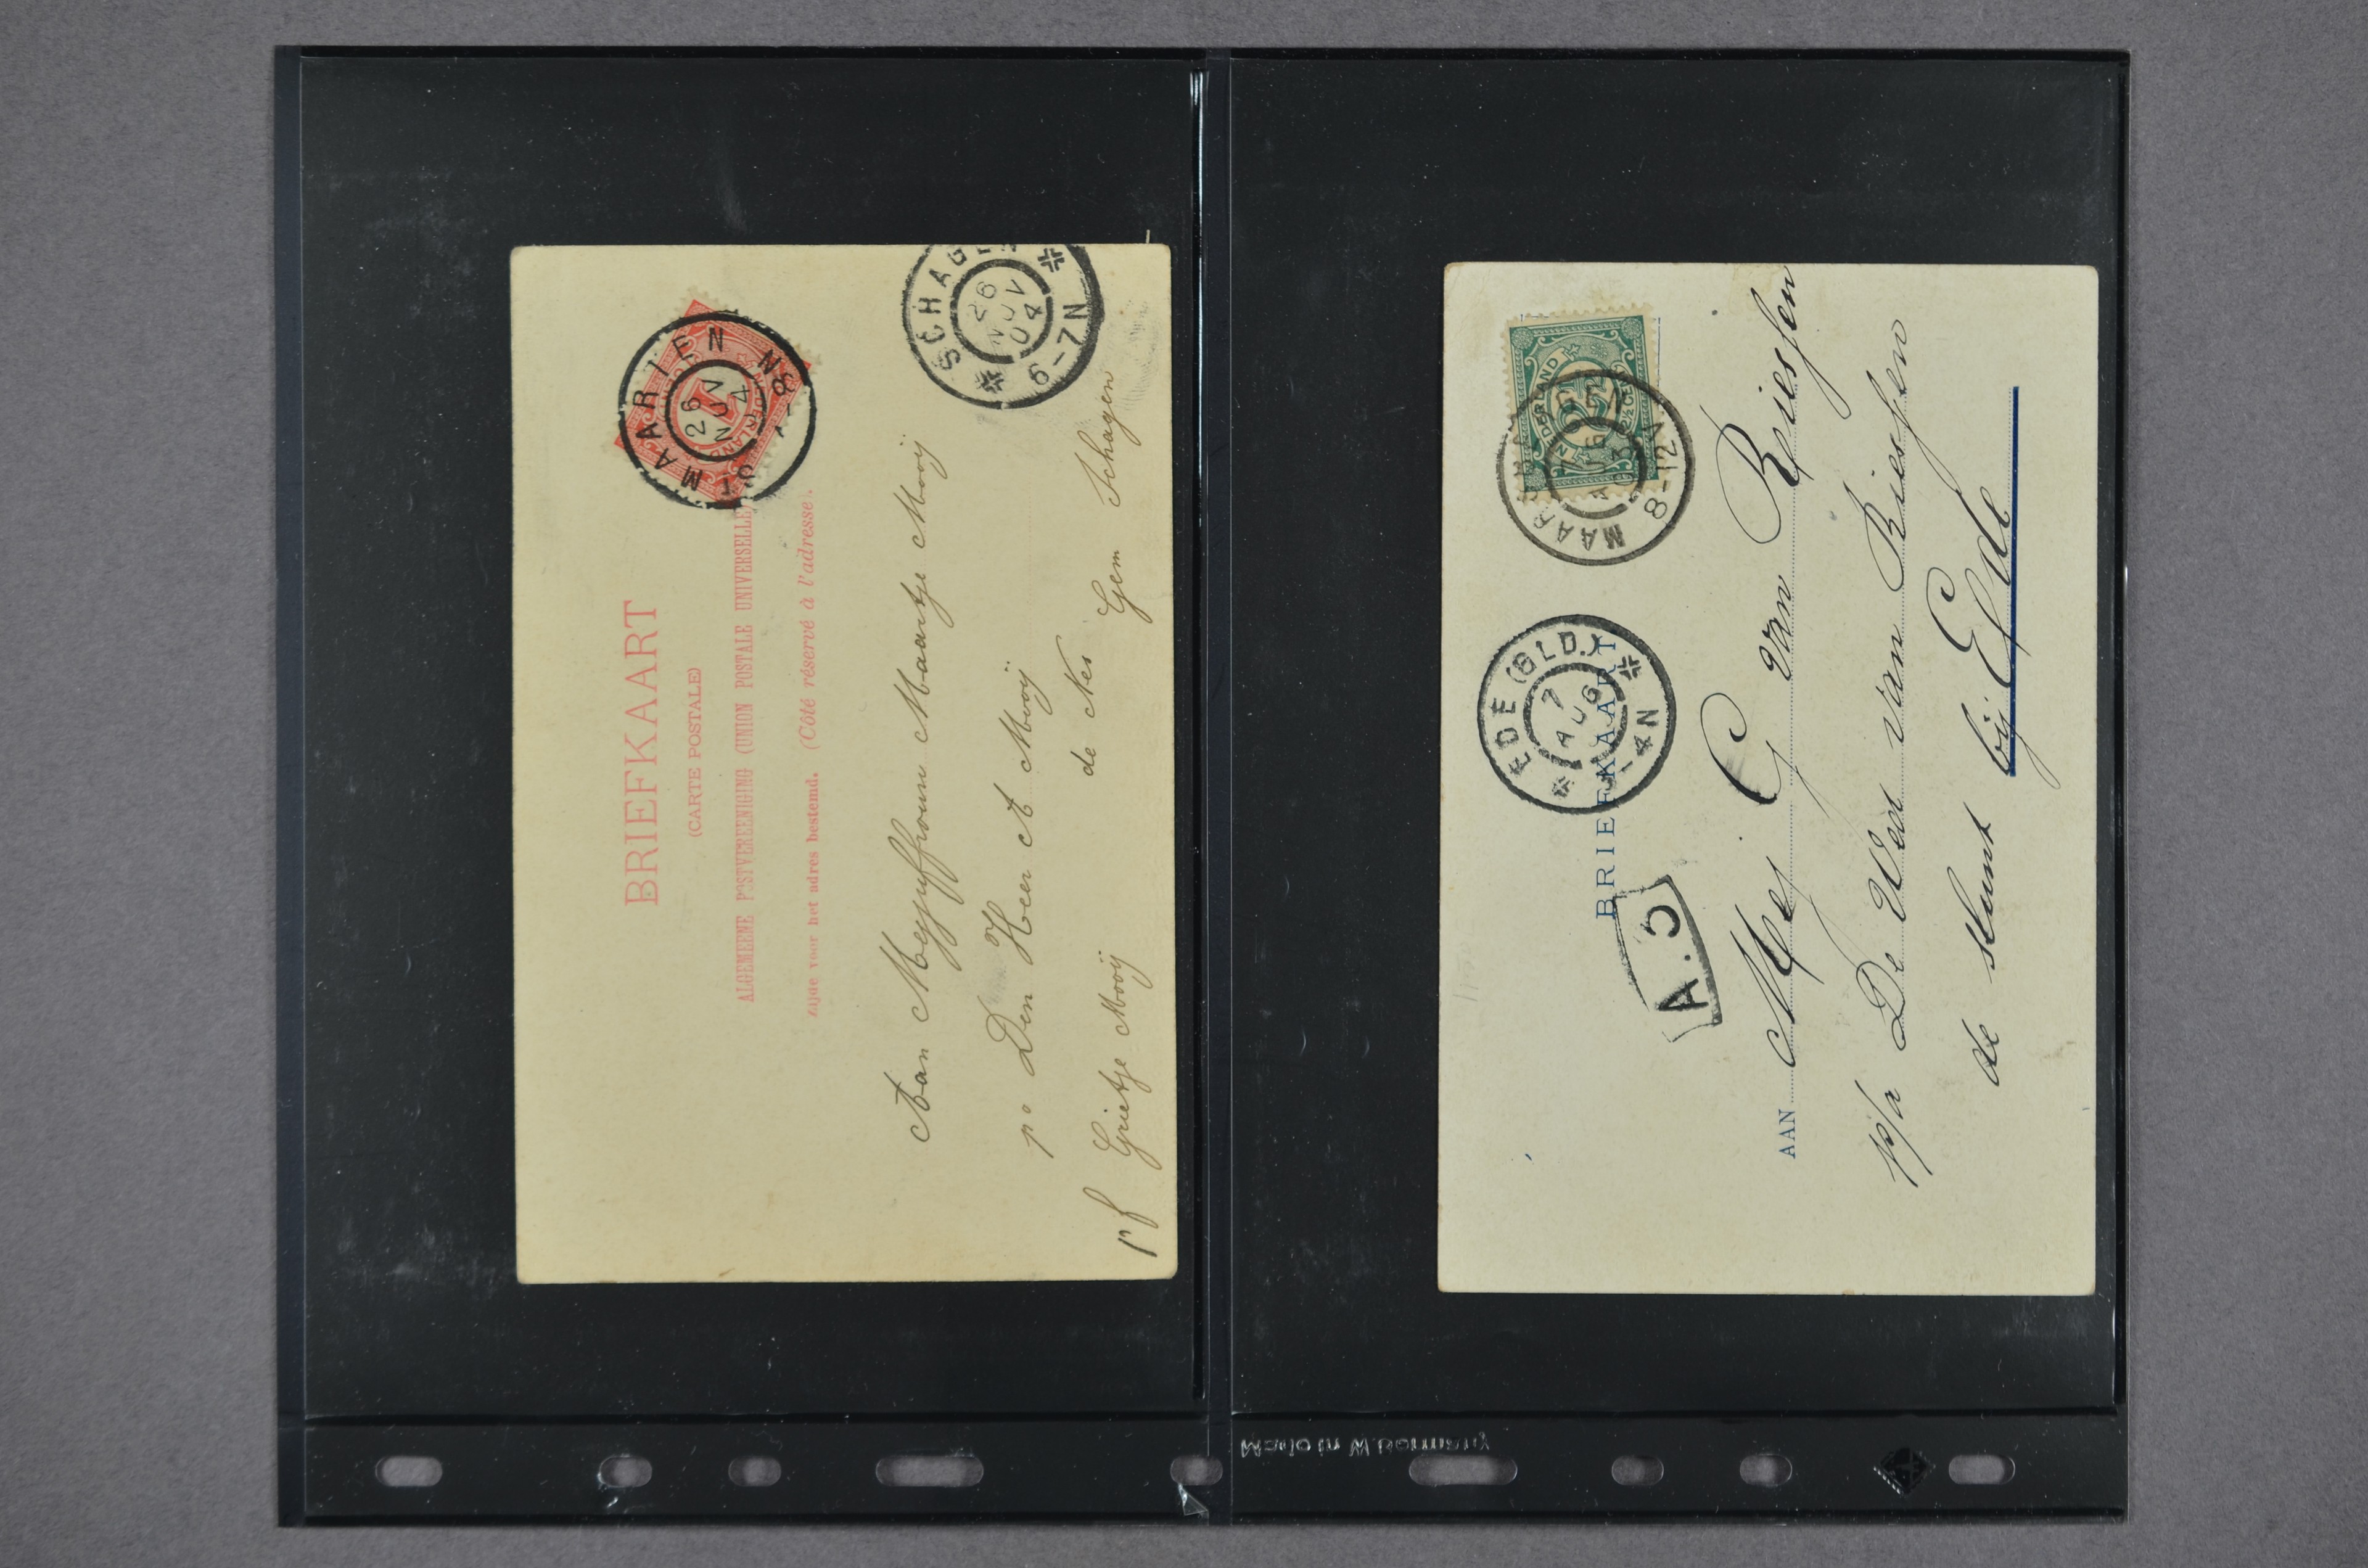 BRIEFKAART
(CARTE POSTALE)
ALGEMEENE POSTVEREENIGING (UNION POSTALE UNIVERSELLE)
Zijde voor het adres bestemd. (Côté réservé à l'adresse.
ST MAARTEN
26 NOV 4
7-8 N
NEDERLAND
SCHAGEN
26 NOV 04
6-7N
Aan Mejuffrouw Maartje Mooij
p. Den Heer A Mooij
de Nes
Gem Schagen
pf Grietje Mooij
BRIEFKAART
NEDERLAND
2½ CENT
8-12V
EDE (GLD.)
7 AUG
-4N
A.5
AAN Mej. G van Riessen
p/a De Wed van Riessen
de
bij Ede
Made in W.Germany